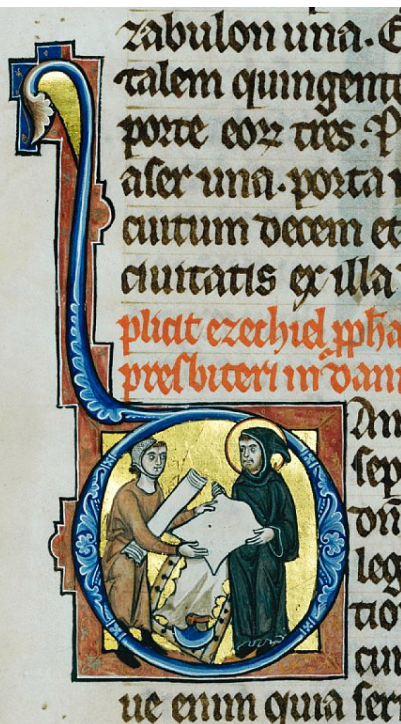 zabulon una. E
talem quingente
porte eorum tres. P
aser una. porta
cuitum decem et
ciuitatis ex illa
plicit ezechiel ppha
presbiteri in dani
An
sep
leg
tio
cun
ue enim quia ser